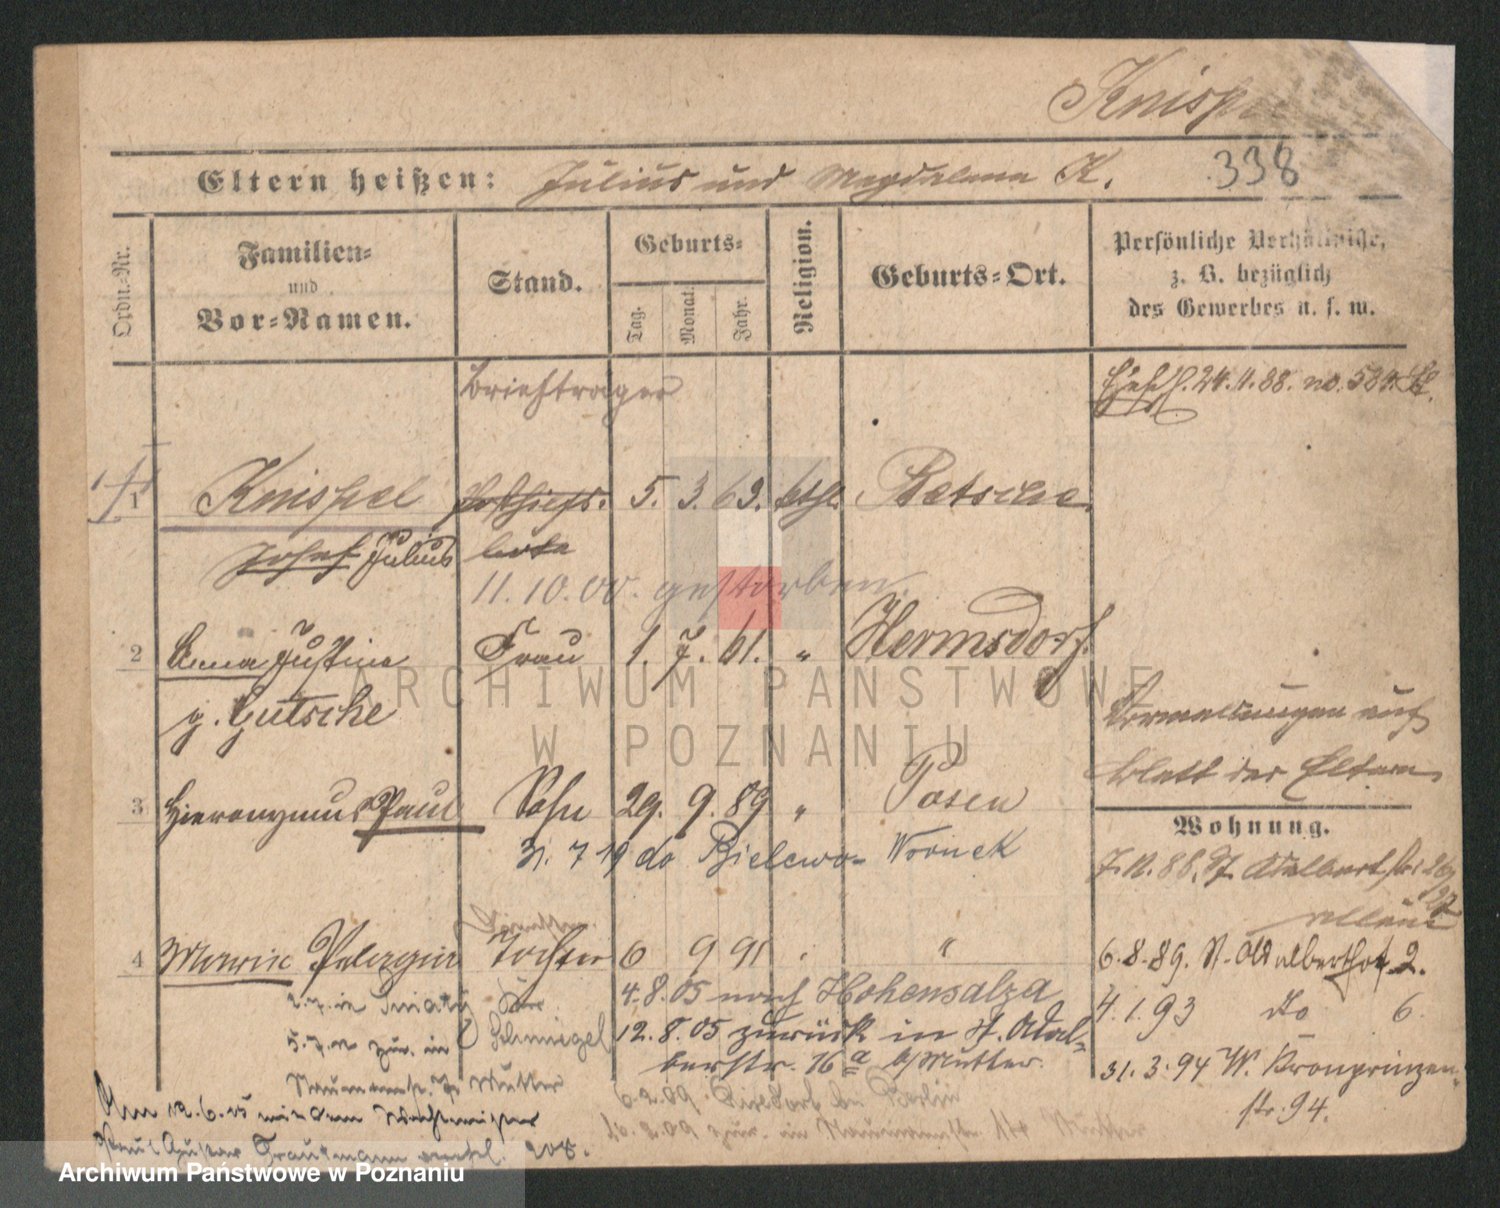 Knisp
338
Eltern heißen: Julius und Magdalena K.
Ordn.-Nr.
Familien-
und
Vor-Namen.
Stand.
Geburts-
Tag.
Monat.
Jahr.
Religion.
Geburts-Ort.
Persönliche Verhältnisse,
z. B. bezüglich
des Gewerbes u. s. w.
Briefträger
24.11.88. no. 584.
1 Knispel 5. 3. 63. kath. Betsche
Josef Julius bote
11.10.00. gestorben
2 Anna Justine Frau 1. 7. 61. " Hermsdorf
g. Gutsche
auf
Blatt der Eltern
3 Hieronymus Paul Sohn 29. 9. 89 " Posen
Wohnung.
31. 7 19 do Bielewo- Wonnek
7.11.88. St. Adalbertstr. 26/27
4 Marie Pelagia Tochter 6 9 91 . "
6.8.89. St. Adalbertstr. 2.
4.8.05 nach Hohensalza
4.1.93 do 6.
Schmiegel 12.8.05 zurück in St. Adal-
berstr. 16a b/Mutter.
5.7. zur. in
31.3.94 W. Kronprinzen-
str. 94.
Mutter
6.2.09. bei Berlin
Am 12.6.15 mit dem Wachtmeister
zur. in Naumannstr. 14 Mutter
Paul Gustav Trautmann verehl. 208.
ARCHIWUM PAŃSTWOWE
W POZNANIU
Archiwum Państwowe w Poznaniu